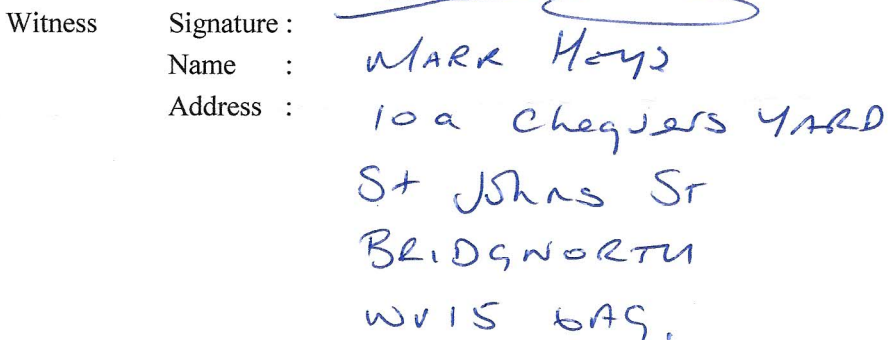 Witness Signature :
Name : MARK HAYS
Address : 10a Chequers YARD
St Johns St
BRIDGNORTH
WV15 6AG.